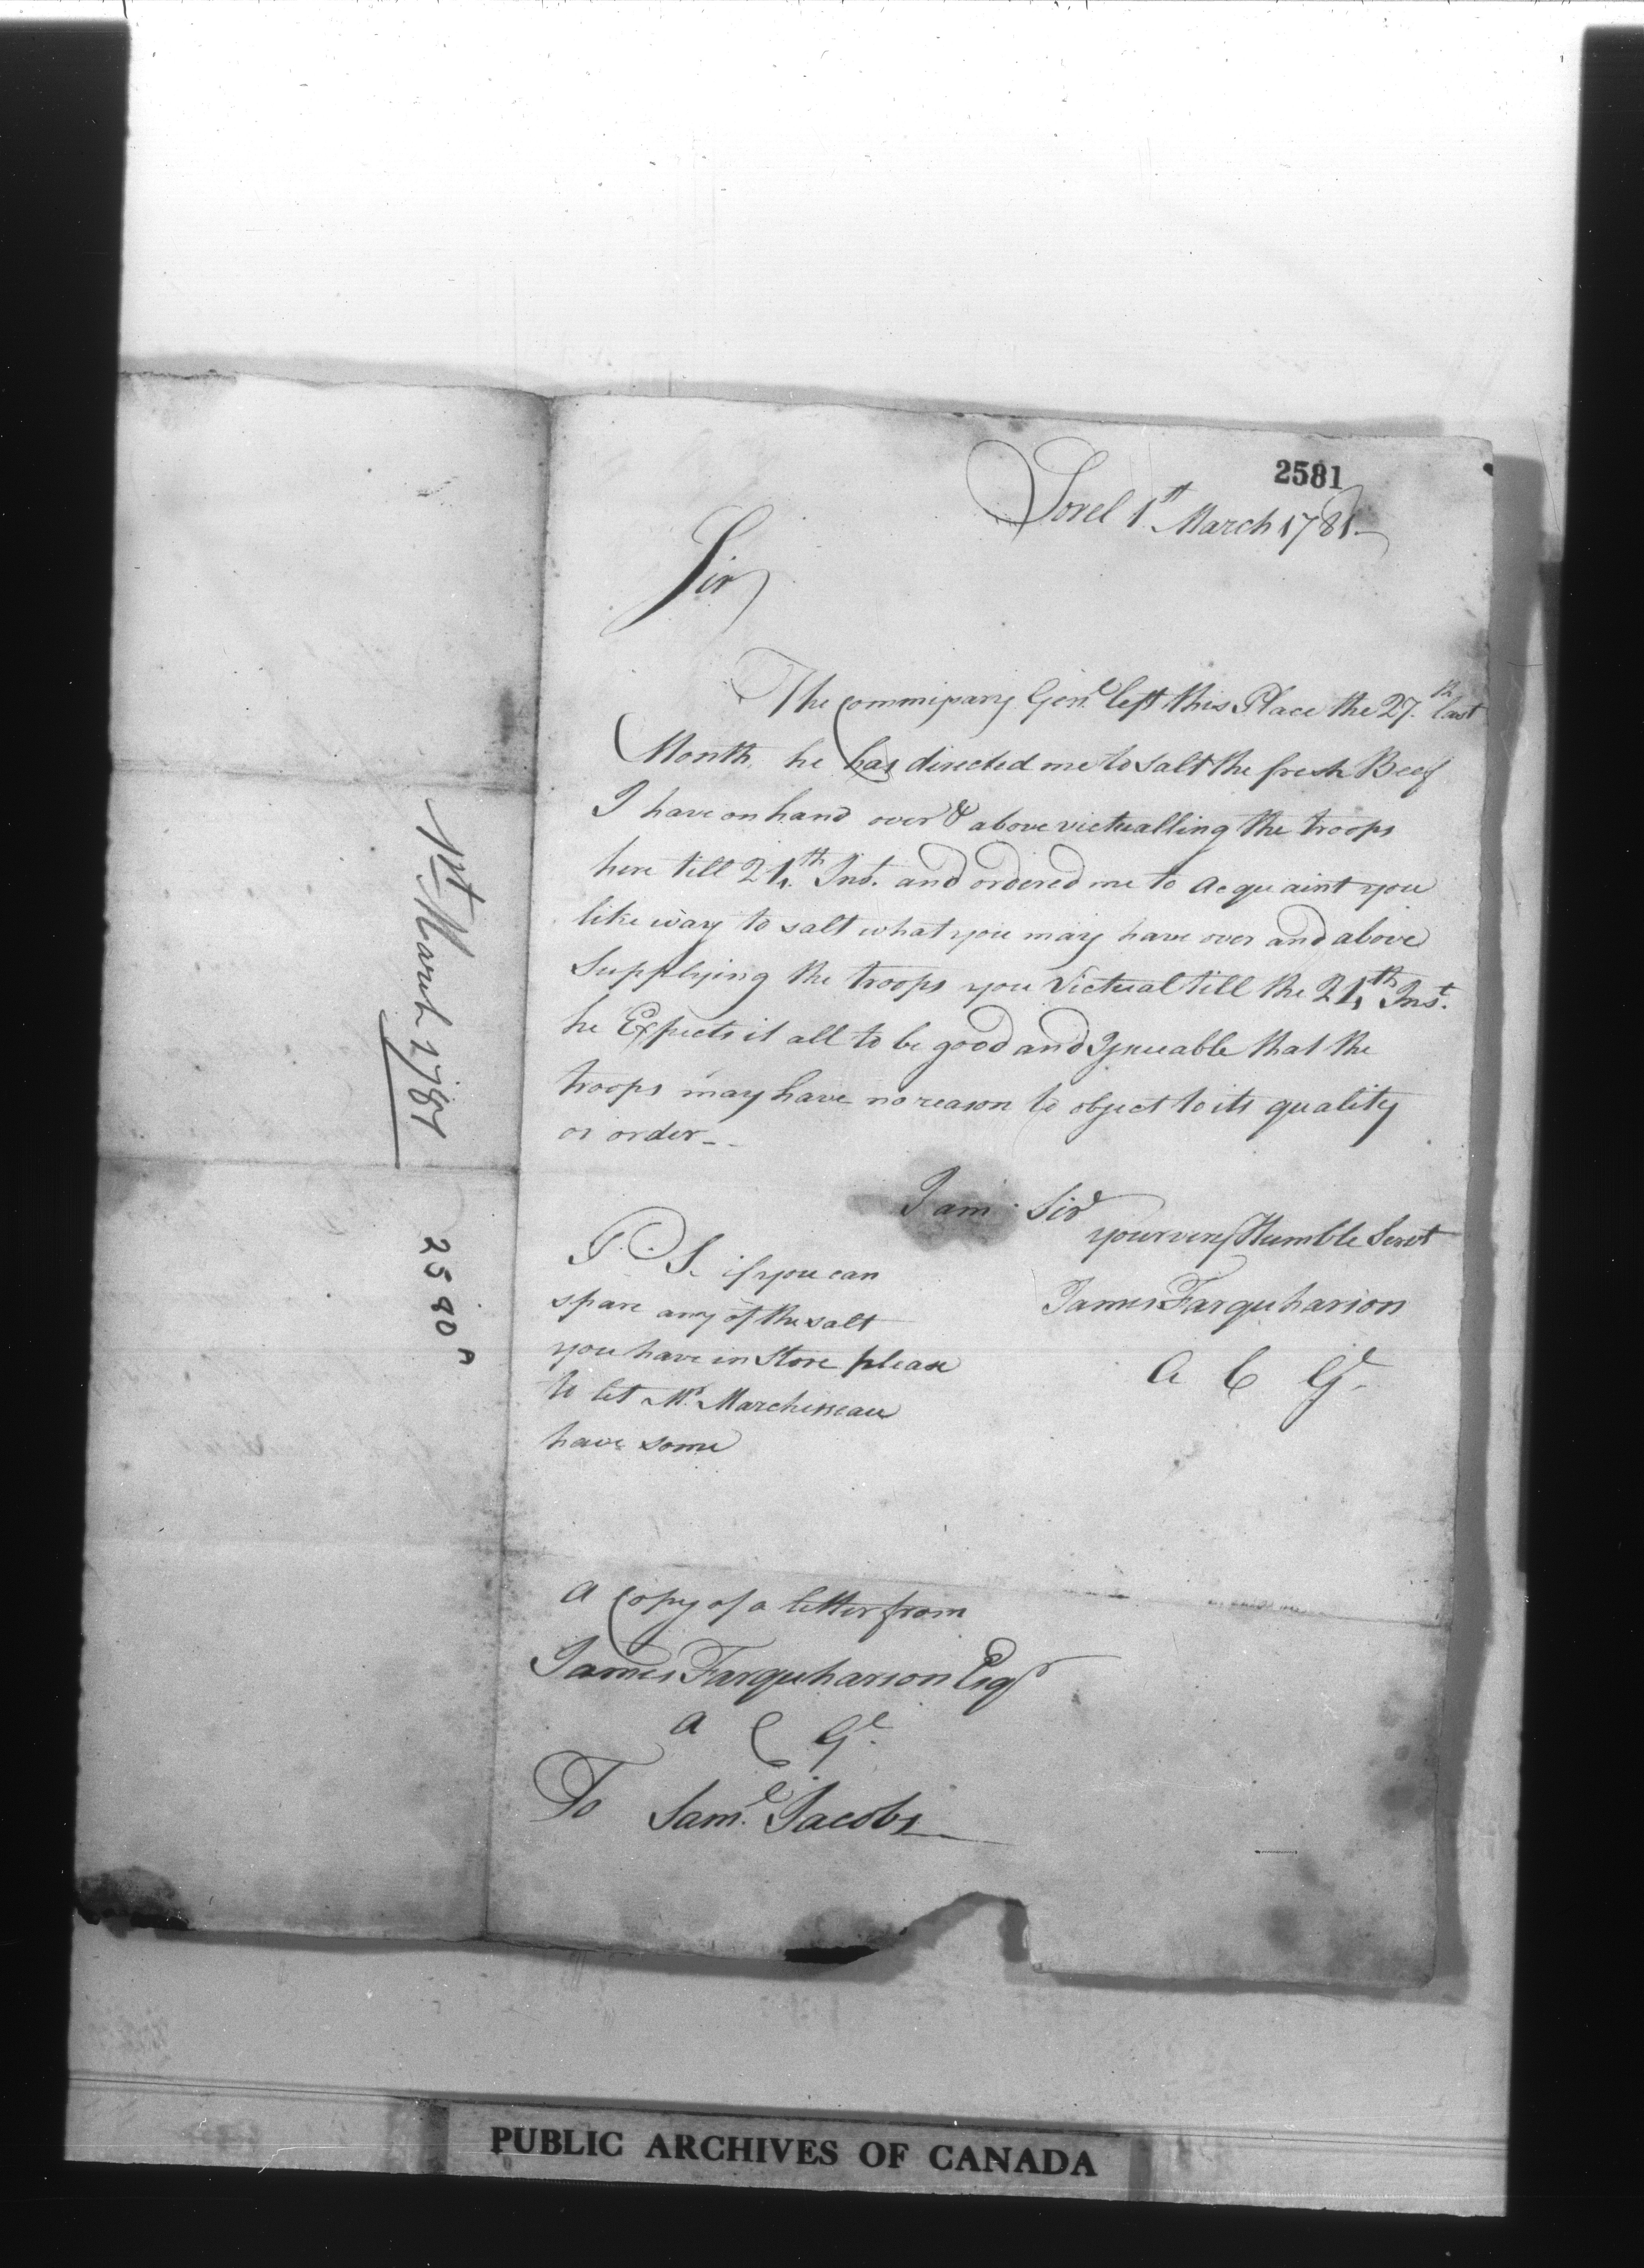 2581
Sorel 1st March 1781.
Sir
The Commissary Genl left this Place the 27.th last
Month, he has directed me to Salt the fresh Beef
I have on hand over & above victualling the troops
here till 24.th Inst. and ordered me to acquaint you
like way to salt what you may have over and above
Supplying the troops you Victual till the 24th Inst.
he Expects it all to be good and Issueable that the
troops may have no reason to object to its quality
or order
I am Sir
your very Humble Servt
James Farquharson
A C Gl
P. S. if you can
spare any of the salt
you have in Store please
to let Mr. Marchisseau
have some
A Copy of a letter from
James Farquharson Esqr
A C Gl.
To Saml. Jacobs
1st March 1781
2580A
PUBLIC ARCHIVES OF CANADA